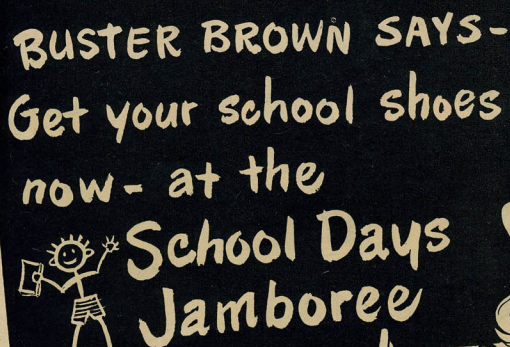 BUSTER BROWN SAYS-
Get your school shoes
now- at the
School Days
Jamboree